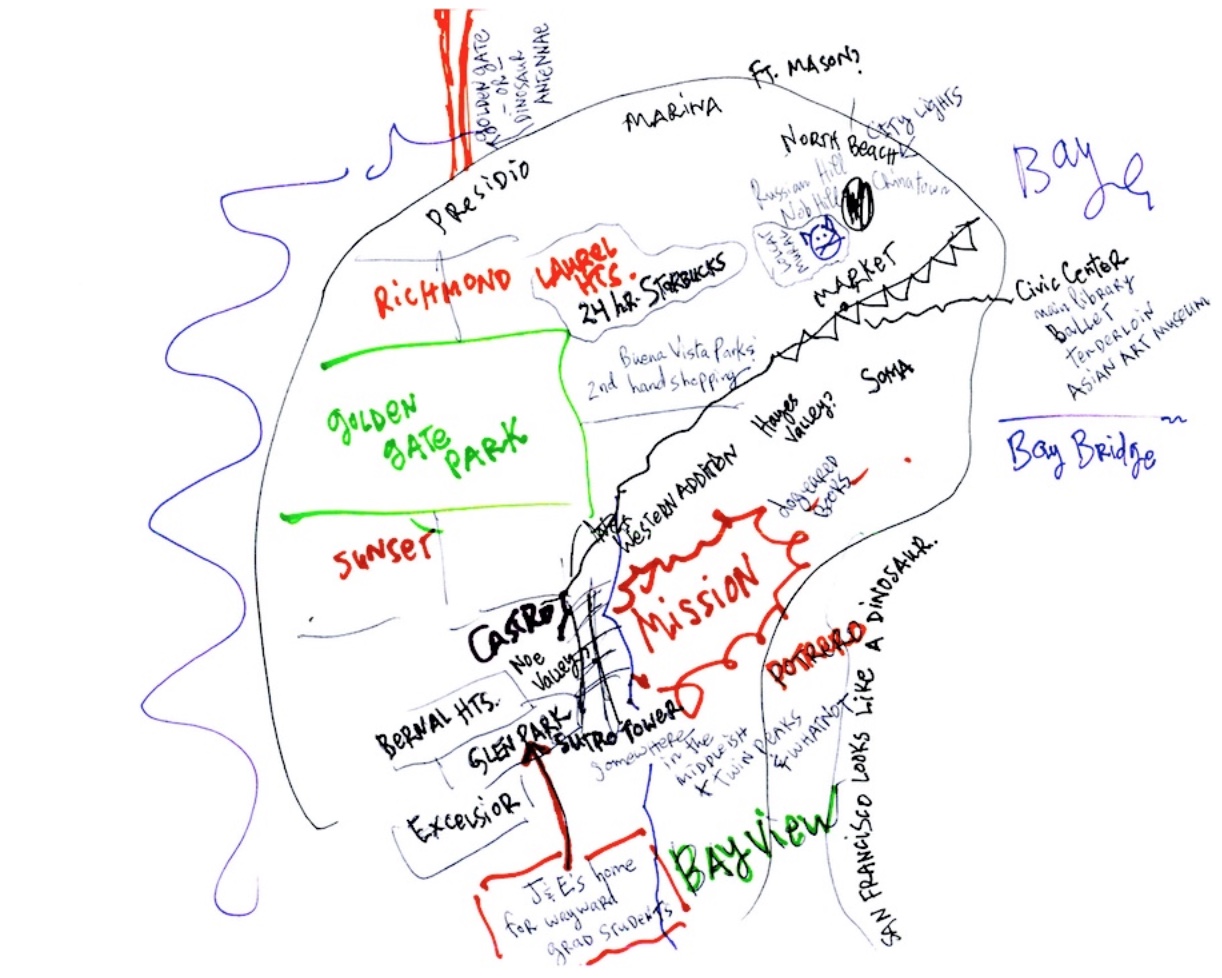 GOLDEN GATE
- OR -
DINOSAUR
ANTENNAE
FT. MASON?
MARINA
CITY LIGHTS
NORTH BEACH
PRESIDIO
Russian Hill
Nob Hill
Chinatown
BAY
RICHMOND
LAUREL
HTS.
24 hR. STARBUCKS
MARKET
Civic Center
main library
Ballet
Tenderloin
ASIAN ART MUSEUM
Buena Vista Parks
2nd hand shopping
SOMA
Hayes
Valley?
GOLDEN
GATE
PARK
Bay Bridge
WESTERN ADDITION
dogeared
Books
SUNSET
MISSION
CASTRO
Noe
Valley
POTRERO
BERNAL HTS.
GLEN PARK
SUTRO TOWER
somewhere
in the
MIDDLEISH
TWIN PEAKS
& WHATNOT
EXCELSIOR
BAYVIEW
J&E's home
for wayward
GRAD STUDENTS
SAN FRANCISCO LOOKS LIKE A DINOSAUR.